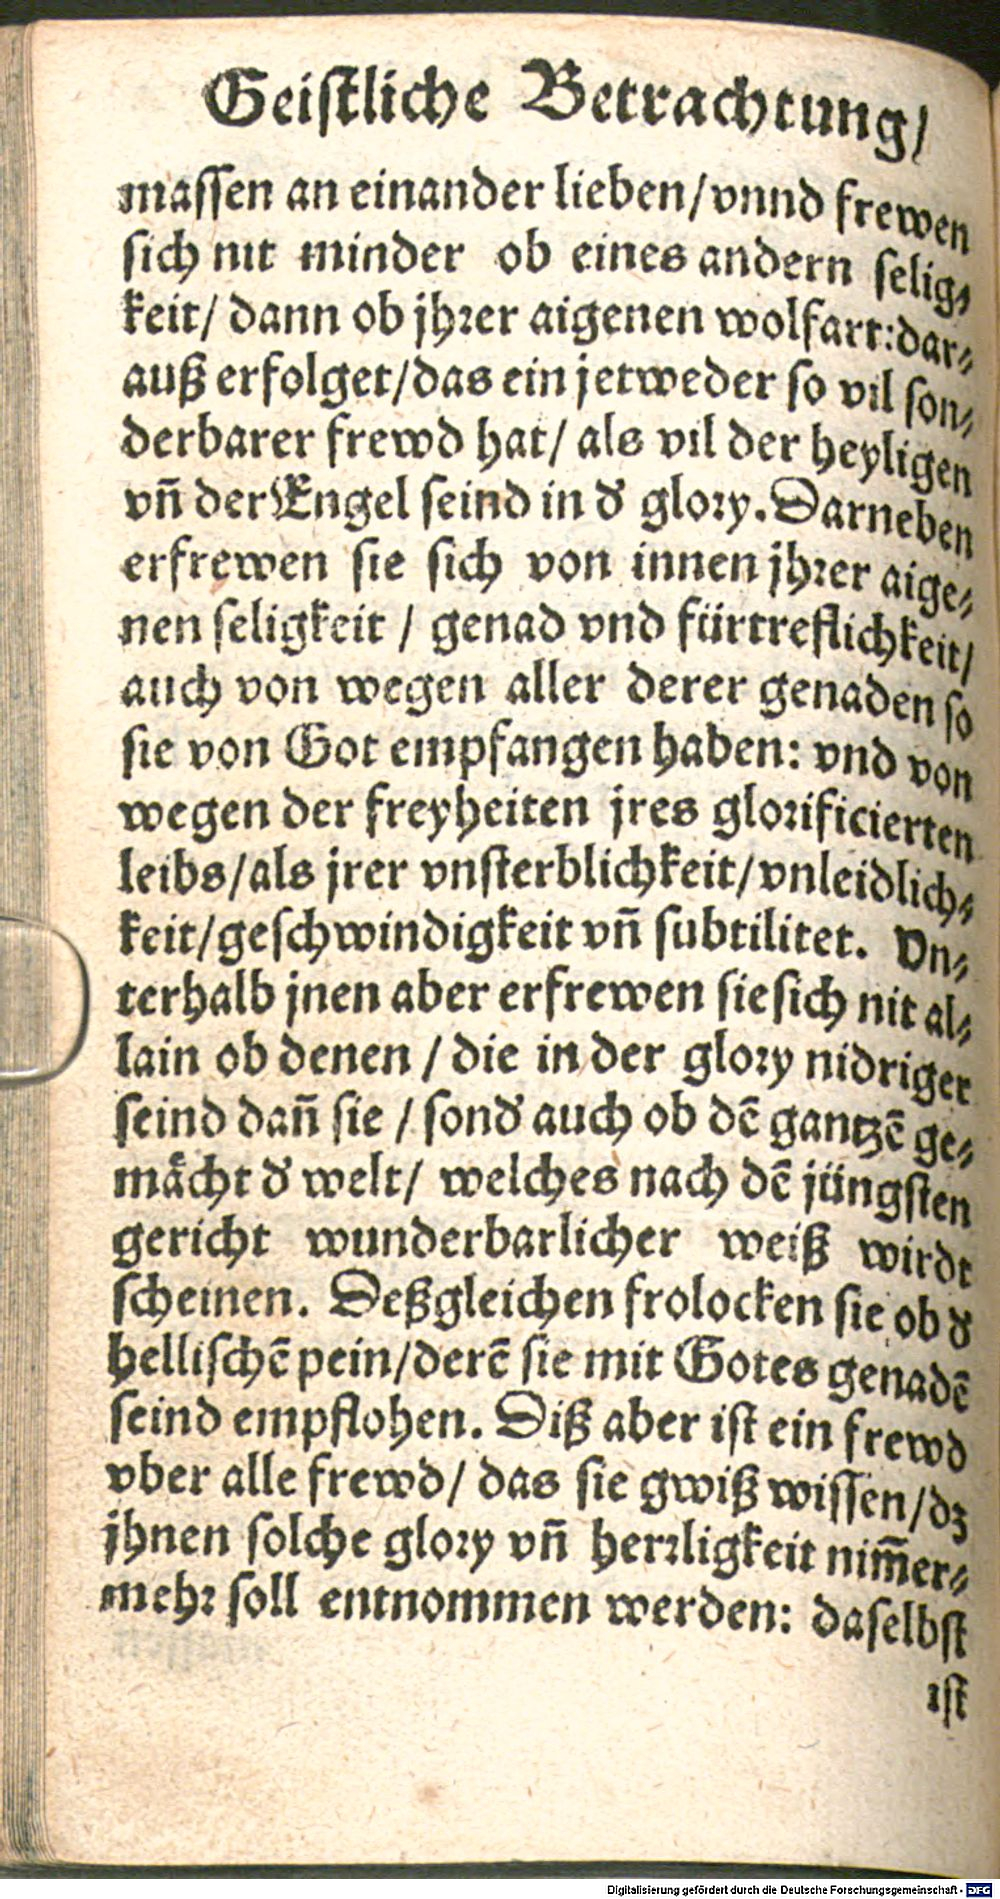 Geistliche Betrachtung/
massen an einander lieben/ vnnd frewen
sich nit minder ob eines andern selig⸗
keit/ dann ob jhrer aigenen wolfart: dar⸗
auß erfolget/ das ein jetweder so vil son⸗
derbarer frewd hat/ als vil der heyligen
vñ der Engel seind in d̕ glory. Darneben
erfrewen sie sich von innen jhrer aige⸗
nen seligkeit / genad vnd fürtreflichkeit/
auch von wegen aller derer genaden so
sie von Got empfangen haben: vnd von
wegen der freyheiten jres glorificierten
leibs/ als jrer vnsterblichkeit/ vnleidlich⸗
keit/ geschwindigkeit vñ subtilitet. Vn⸗
terhalb jnen aber erfrewen sie sich nit al⸗
lain ob denen / die in der glory nidriger
seind dañ sie / sond̕ auch ob dē gantzē ge⸗
mächt d̕ welt/ welches nach dē jüngsten
gericht wunderbarlicher weiß wirdt
scheinen. Deßgleichen frolocken sie ob d̕
hellischē pein/ derē sie mit Gotes genadē
seind empflohen. Diß aber ist ein frewd
vber alle frewd/ das sie gwiß wissen/ dz
jhnen solche glory vñ herrligkeit nim̄er⸗
mehr soll entnommen werden: daselbst
ist
Digitalisierung gefördert durch die Deutsche Forschungsgemeinschaft - DFG